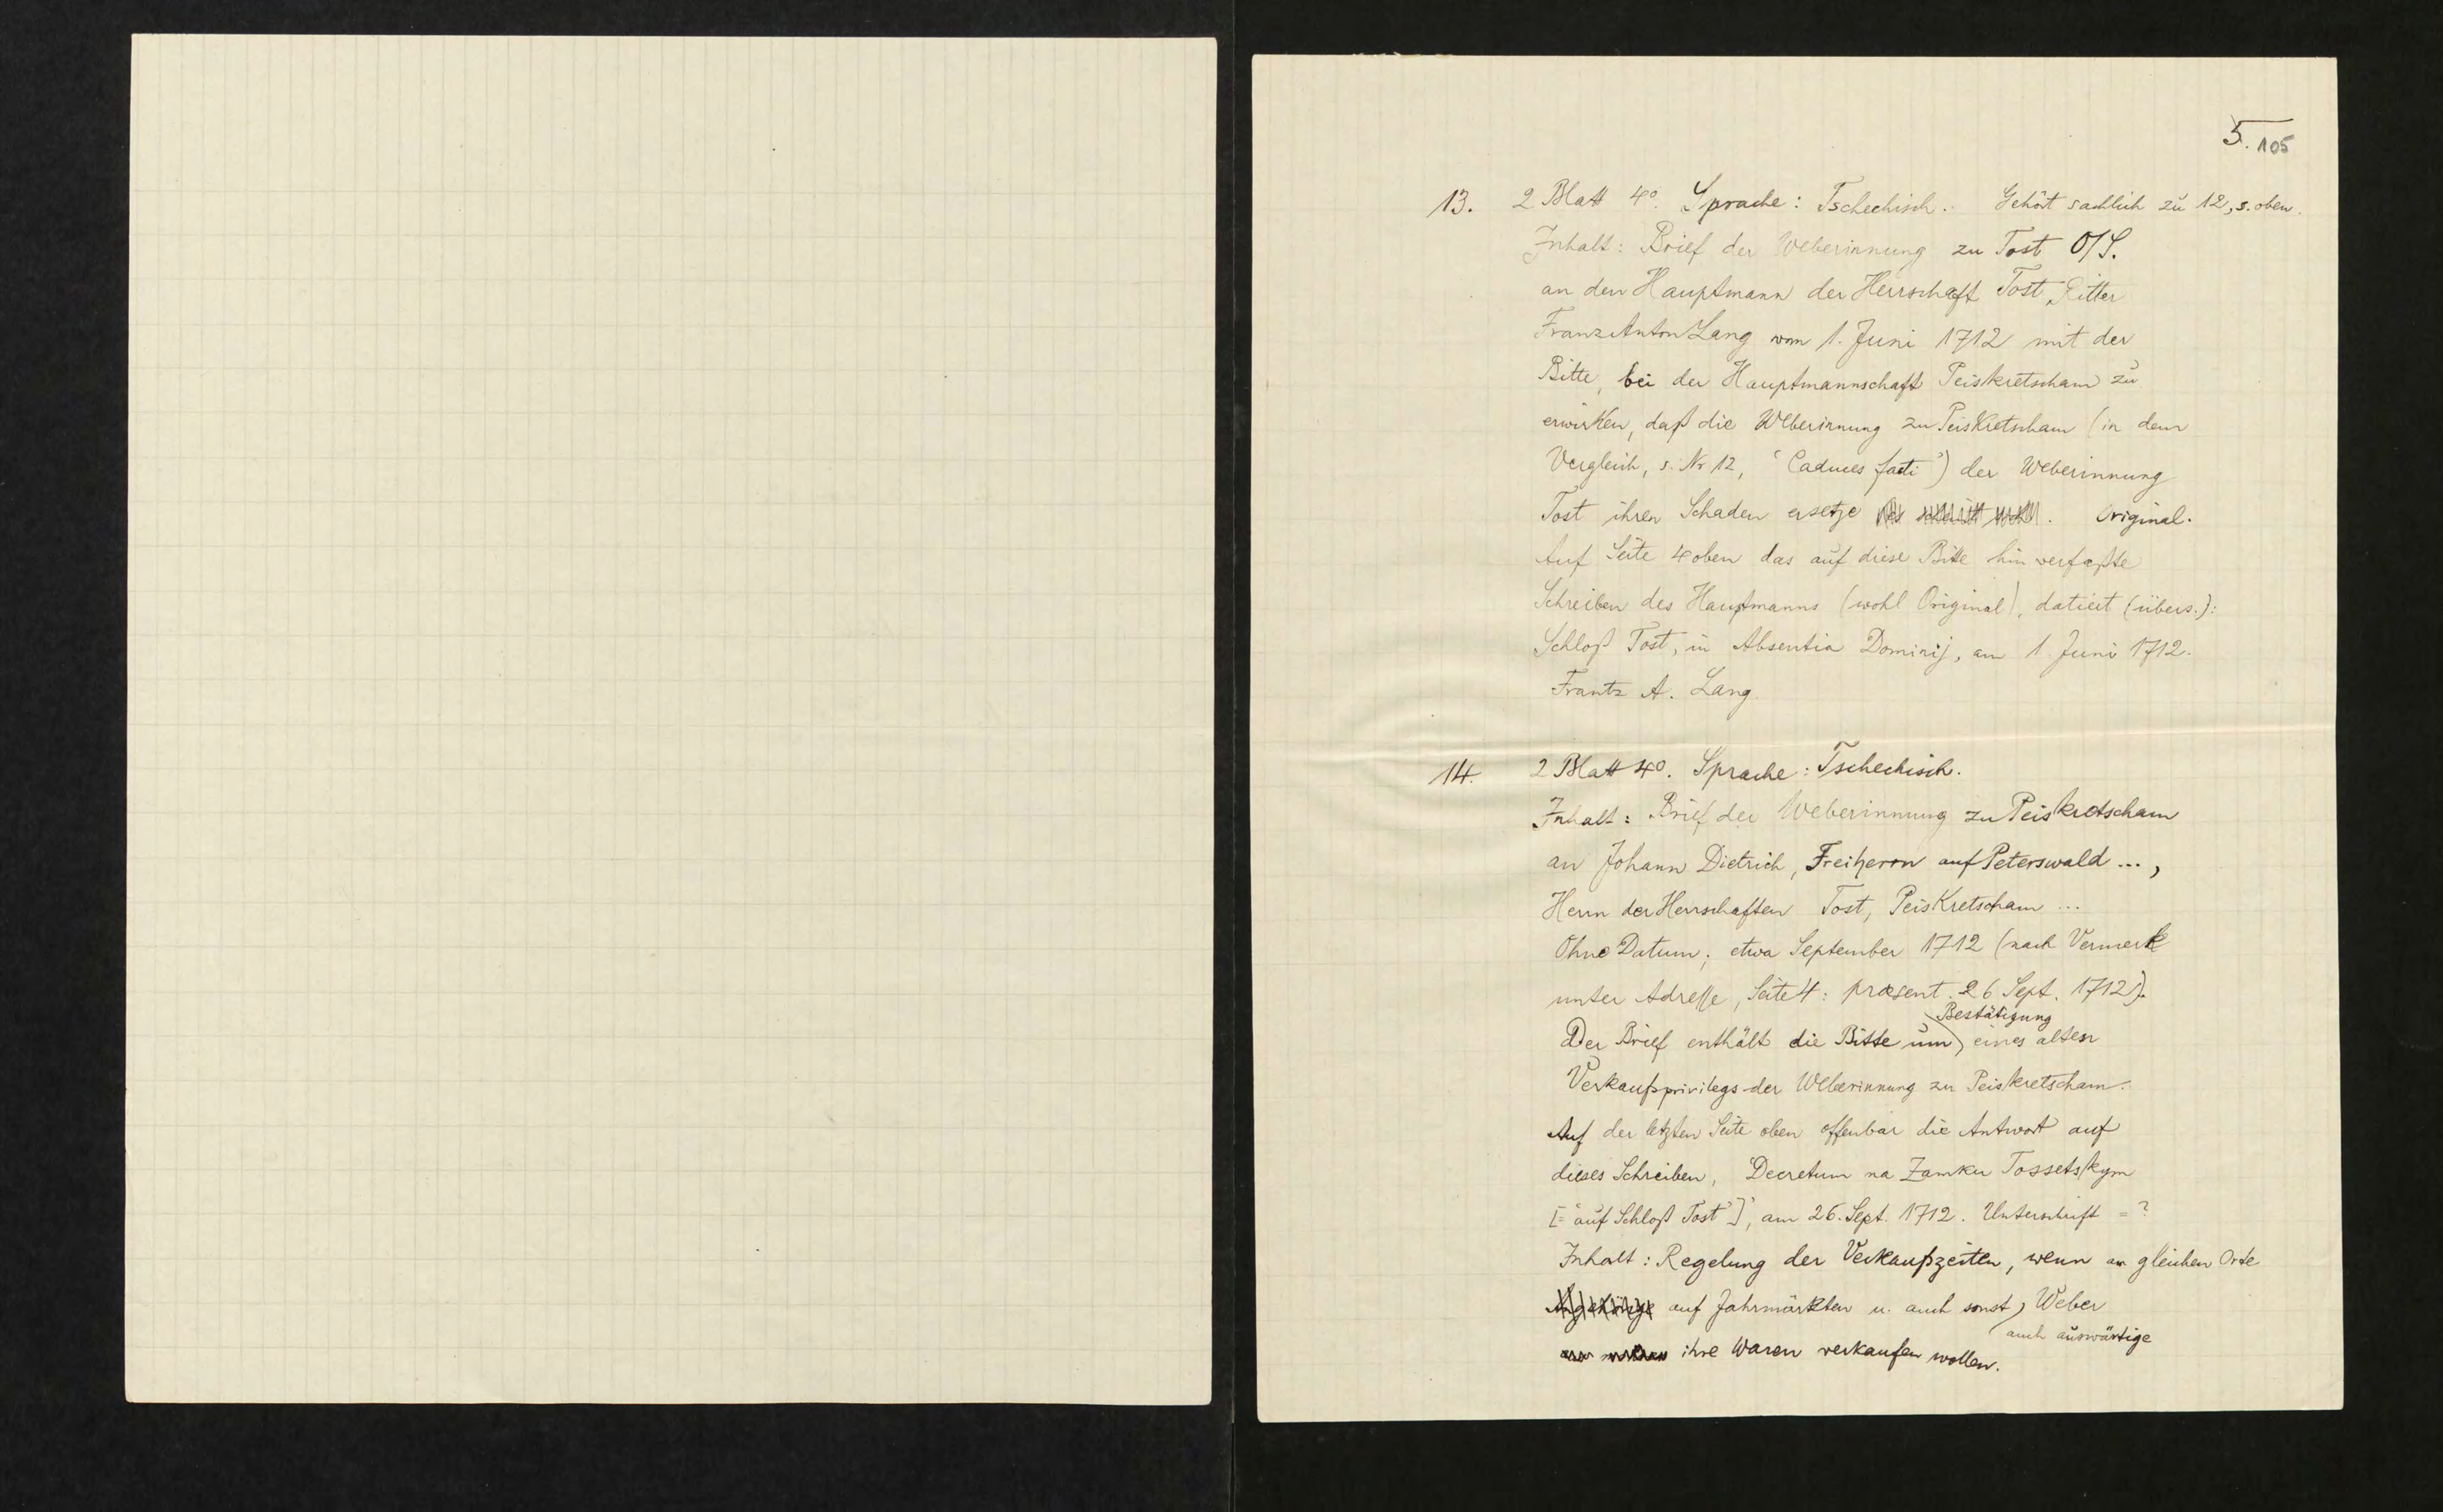 5. 105
13. 2 Blatt 4°. Sprache: Tschechisch. Gehört sachlich zu 12, s. oben.
Inhalt: Brief der Weberinnung zu Tost O/S.
an den Hauptmann der Herrschaft Tost, Ritter
Franz Anton Lang vom 1. Juni 1712 mit der
Bitte, bei der Hauptmannschaft Peiskretscham zu
erwirken, daß die Weberinnung zu Peiskretscham (in dem
Vergleich, s. Nr 12, 'Caduces facti') der Weberinnung
Tost ihren Schaden ersetze. Original.
Auf Seite 4 oben das auf diese Bitte hin verfaßte
Schreiben des Hauptmanns (wohl Original), datiert (übers.):
Schloß Tost, in Absentia Dominij, am 1. Juni 1712.
Frantz A. Lang
14. 2 Blatt 4°. Sprache: Tschechisch.
Inhalt: Brief der Weberinnung zu Peiskretscham
an Johann Dietrich, Freiherrn auf Peterswald ...,
Herrn der Herrschaften Tost, Peiskretscham ...
Ohne Datum; etwa September 1712 (nach Vermerk
unter Adresse, Seite 4: præsent. 26 Sept. 1712).
Der Brief enthält die Bitte um Bestätigung eines alten
Verkaufsprivilegs der Weberinnung zu Peiskretscham.
Auf der letzten Seite oben offenbar die Antwort auf
dieses Schreiben, 'Decretum na Zamku Tossetskym
[= 'auf Schloß Tost']', am 26. Sept. 1712. Unterschrift = ?
Inhalt: Regelung der Verkaufszeiten, wenn am gleichen Orte
auf Jahrmärkten u. auch sonst, auch auswärtige Weber
ihre Waren verkaufen wollen.